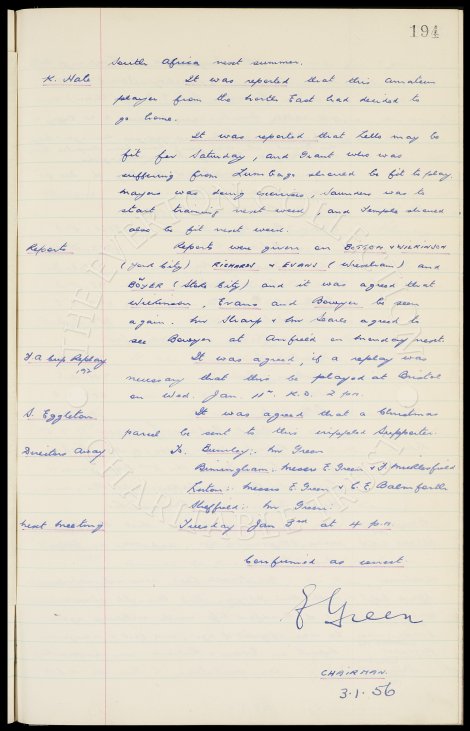 194
South Africa next summer.
K. Hale It was reported that this amateur
player from the North East had decided to
go home.
It was reported that Tells may be
fit for Saturday, and Grant who was
suffering from Lumbago should be fit to play.
Mayers was doing exercises, Saunders was to
start training next week, and Temple should
also be fit next week.
Reports Reports were given on BOTTOM & WILKINSON
(York City) RICHARDS & EVANS (Wrexham) and
BOWYER (Stoke City) and it was agreed that
Wilkinson, Evans and Bowyer be seen
again. Mr Sharp & Mr Searle agreed to
see Bowyer at Anfield on Monday next.
F A Cup Replay It was agreed, if a replay was
necessary that this be played at Bristol
on Wed. Jan 11th. K.O. 2 p.m.
S. Eggleton It was agreed that a Christmas
parcel be sent to this crippled supporter.
Directors Away To. Burnley:- Mr Green
Birmingham: Messrs E. Green & F. Micklesfield
Luton: Messrs E. Green & C. E. Balmforth
Sheffield: Mr Green:
Next Meeting Tuesday Jan 3rd at 4 p.m.
Confirmed as correct
E Green
CHAIRMAN.
3.1.56
THE EVERTON COLLECTION
CHARITABLE TRUST